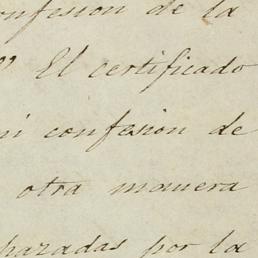 confesion de la
El certificado
ni confesion de
otra manera
por la